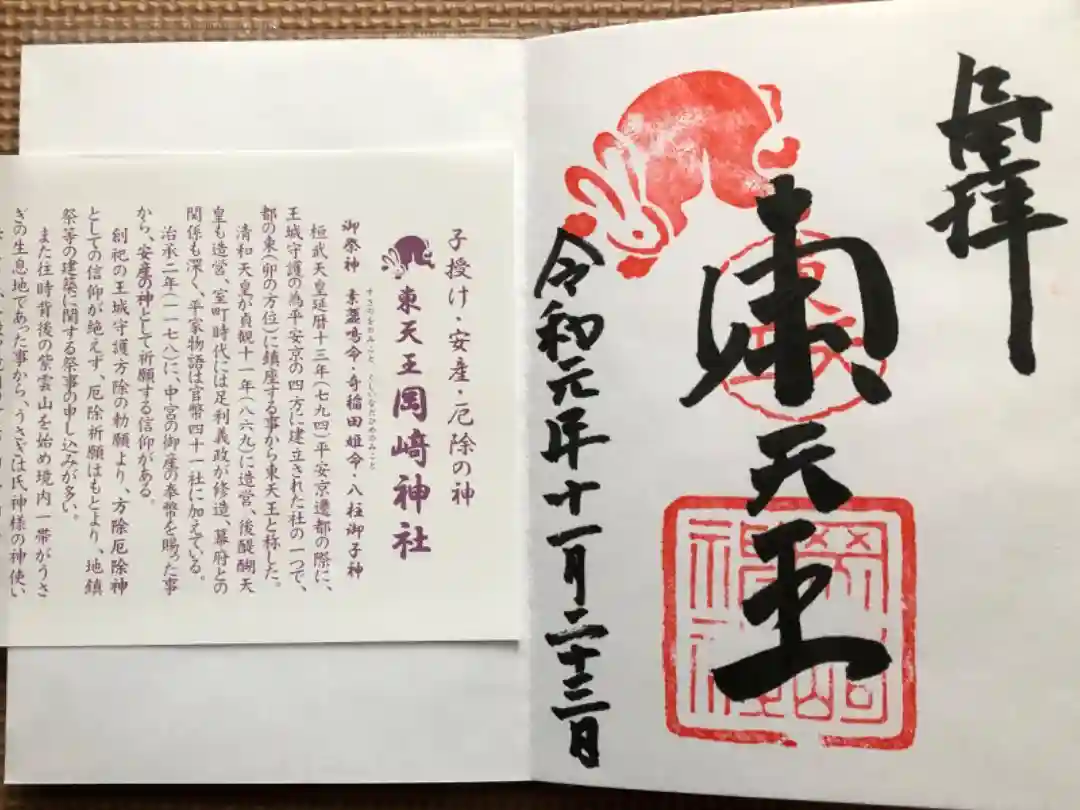 奉拝
東天王
岡崎
神社
令和元年十一月二十三日
子授け・安産・厄除の神
東天王 岡﨑神社
すさのをのみこと くしいなだひめのみこと
御祭神 素盞鳴命・奇稲田姫命・八柱御子神
桓武天皇延暦十三年(七九四)平安京遷都の際に、
王城守護の為平安京の四方に建立された社の一つで、
都の東(卯の方位)に鎮座する事から東天王と称した。
清和天皇が貞観十一年(八六九)に造営、後醍醐天
皇も造営、室町時代には足利義政が修造、幕府との
関係も深く、平家物語は官幣四十一社に加えている。
治承二年(一一七八)に、中宮の御産の奉幣を賜った事
から、安産の神として祈願する信仰がある。
創祀の王城守護方除の勅願より、方除厄除神
としての信仰が絶えず、厄除祈願はもとより、地鎮
祭等の建築に関する祭事の申し込みが多い。
また往時背後の紫雲山を始め境内一帯がうさ
ぎの生息地であった事から、うさぎは氏神様の神使い